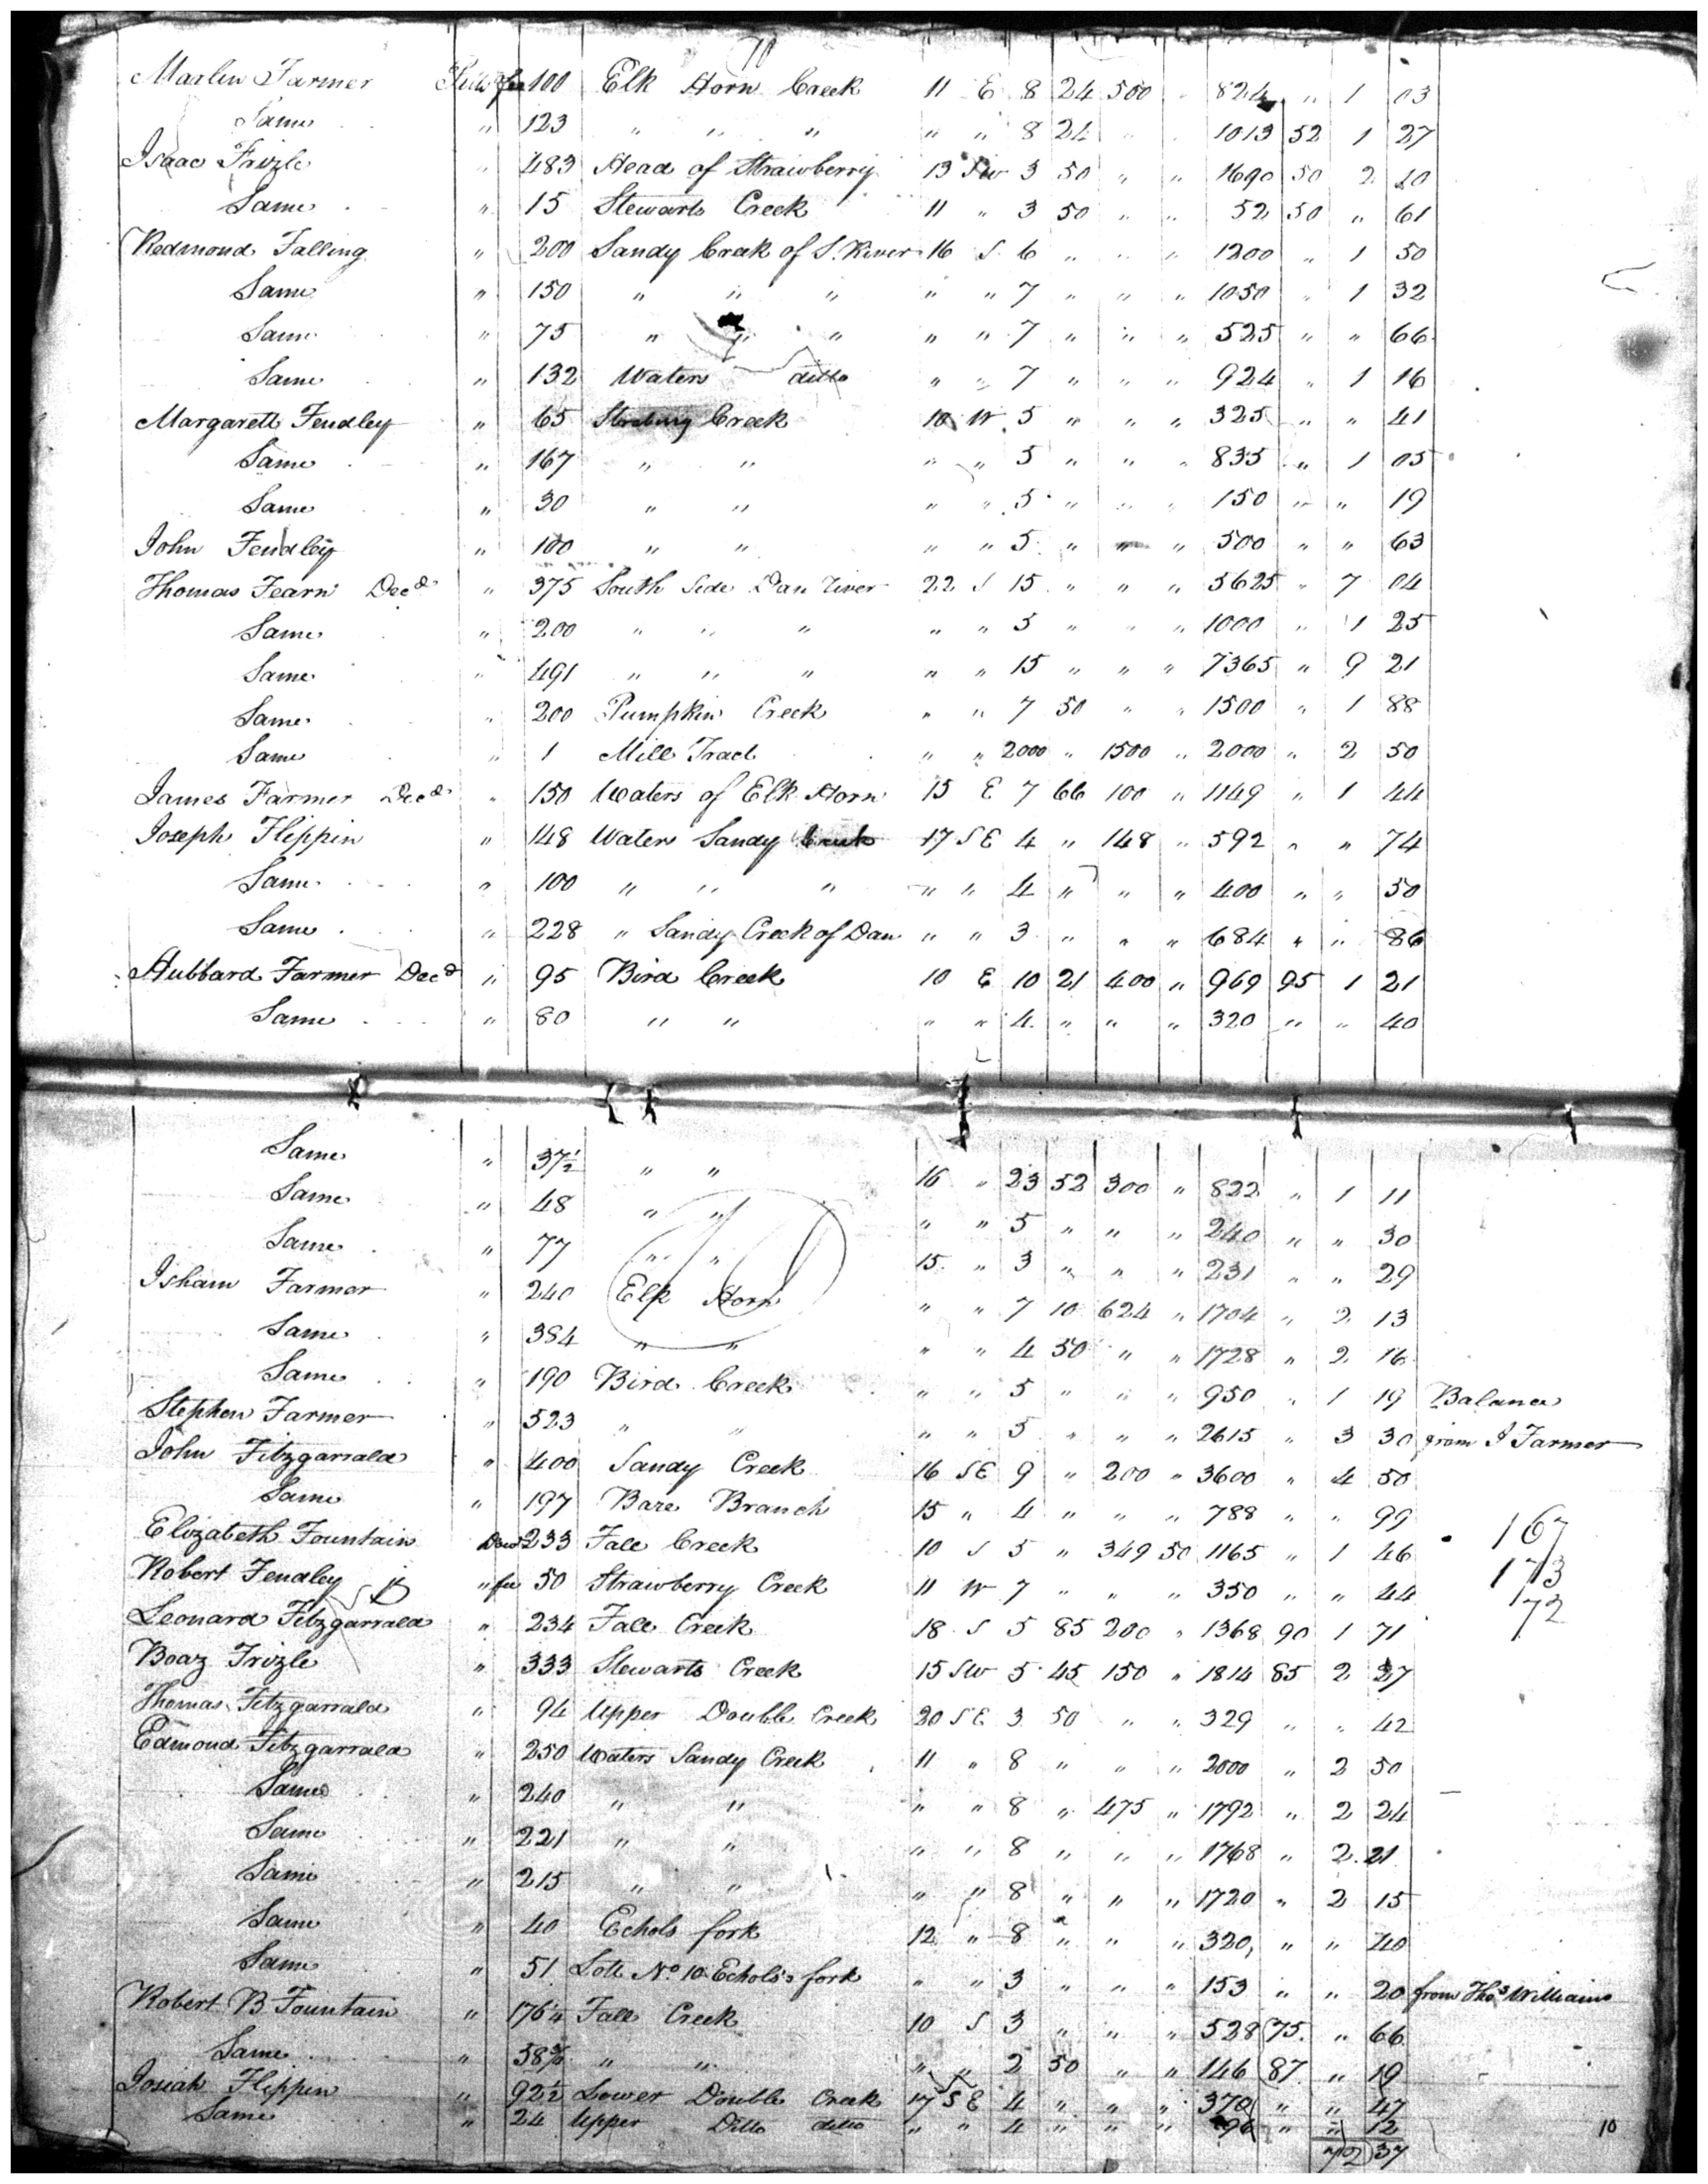 10
Marlin Farmer fee 100 Elk Horn Creek 11 E 8 24 500 " 824 " 1 03
Same " 123 " " " " " 8 24 " " 1013 52 1 27
Isaac Frizle " 483 Head of Strawberry 13 SW 3 50 " " 1690 50 2 10
Same " 15 Stewarts Creek 11 " 3 50 " " 52 50 " 61
Redmond Falling " 200 Sandy Creek of S. River 16 S 6 " " " 1200 " 1 50
Same " 150 " " " " " 7 " " " 1050 " 1 32
Same " 75 " " " " " 7 " " " 525 " " 66
Same " 132 Waters ditto " " 7 " " " 924 " 1 16
Margarett Fendley " 65 Creek 10 W 5 " " " 325 " " 41
Same " 167 " " " " 5 " " " 835 " 1 05
Same " 30 " " " " 5 " " " 150 " " 19
John Fendley " 100 " " " " 5 " " " 500 " " 63
Thomas Fearn Decd " 375 South Side Dan River 22 S 15 " " " 5625 " 7 04
Same " 200 " " " " " 5 " " " 1000 " 1 25
Same " 491 " " " " " 15 " " " 7365 " 9 21
Same " 200 Pumpkin Creek " " 7 50 " " 1500 " 1 88
Same " 1 Mill Tract " " 2000 " 1500 " 2000 " 2 50
James Farmer Decd " 150 Waters of Elk Horn 15 E 7 66 100 " 1149 " 1 44
Joseph Flippin " 148 Waters Sandy Creek 17 SE 4 " 148 " 592 " " 74
Same " 100 " " " " " 4 " " " 400 " " 50
Same " 228 " Sandy Creek of Dan " " 3 " " " 684 " " 86
Hubbard Farmer Decd " 95 Bird Creek 10 E 10 21 400 " 969 95 1 21
Same " 80 " " " " 4 " " " 320 " " 40
Same " 37½ " " 16 " 23 52 300 " 822 " 1 11
Same " 48 " " " " 5 " " " 240 " " 30
Same " 77 " " 15 " 3 " " " 231 " " 29
Isham Farmer " 240 Elk Horn " " 7 10 624 " 1704 " 2 13
Same " 384 " " " " 4 50 " " 1728 " 2 16
Same " 190 Bird Creek " " 5 " " " 950 " 1 19 Balance
Stephen Farmer " 523 " " " " 5 " " " 2615 " 3 30 from I Farmer
John Fitzgarrald " 400 Sandy Creek 16 SE 9 " 200 " 3600 " 4 50
Same " 197 Bare Branch 15 " 4 " " " 788 " " 99
Elizabeth Fountain Dow 233 Fall Creek 10 S 5 " 349 50 1165 " 1 46 167
Robert Fendley " fee 50 Strawberry Creek 11 W 7 " " " 350 " " 44 173
Leonard Fitzgarrald " 234 Fall Creek 18 S 5 85 200 " 1368 90 1 71 172
Boaz Frizle " 333 Stewarts Creek 15 SW 5 45 150 " 1814 85 2 27
Thomas Fitzgarrald " 94 Upper Double Creek 20 SE 3 50 " " 329 " " 42
Edmond Fitzgarrald " 250 Waters Sandy Creek 11 " 8 " " " 2000 " 2 50
Same " 240 " " " " 8 " 475 " 1792 " 2 24
Same " 221 " " " " 8 " " " 1768 " 2 21
Same " 215 " " " " 8 " " " 1720 " 2 15
Same " 40 Echols fork 12 " 8 " " " 320 " " 40
Same " 51 Lott No 10 Echols's fork " " 3 " " " 153 " " 20 from Thos Williams
Robert B Fountain " 176¼ Fall Creek 10 S 3 " " " 528 75 " 66
Same " 58¾ " " " " 2 50 " " 146 87 " 19
Josiah Flippin " 92½ Lower Double Creek 17 SE 4 " " " 370 " " 47
Same " 24 Upper Ditto ditto " " 4 " " " 96 " " 12
10
72 37